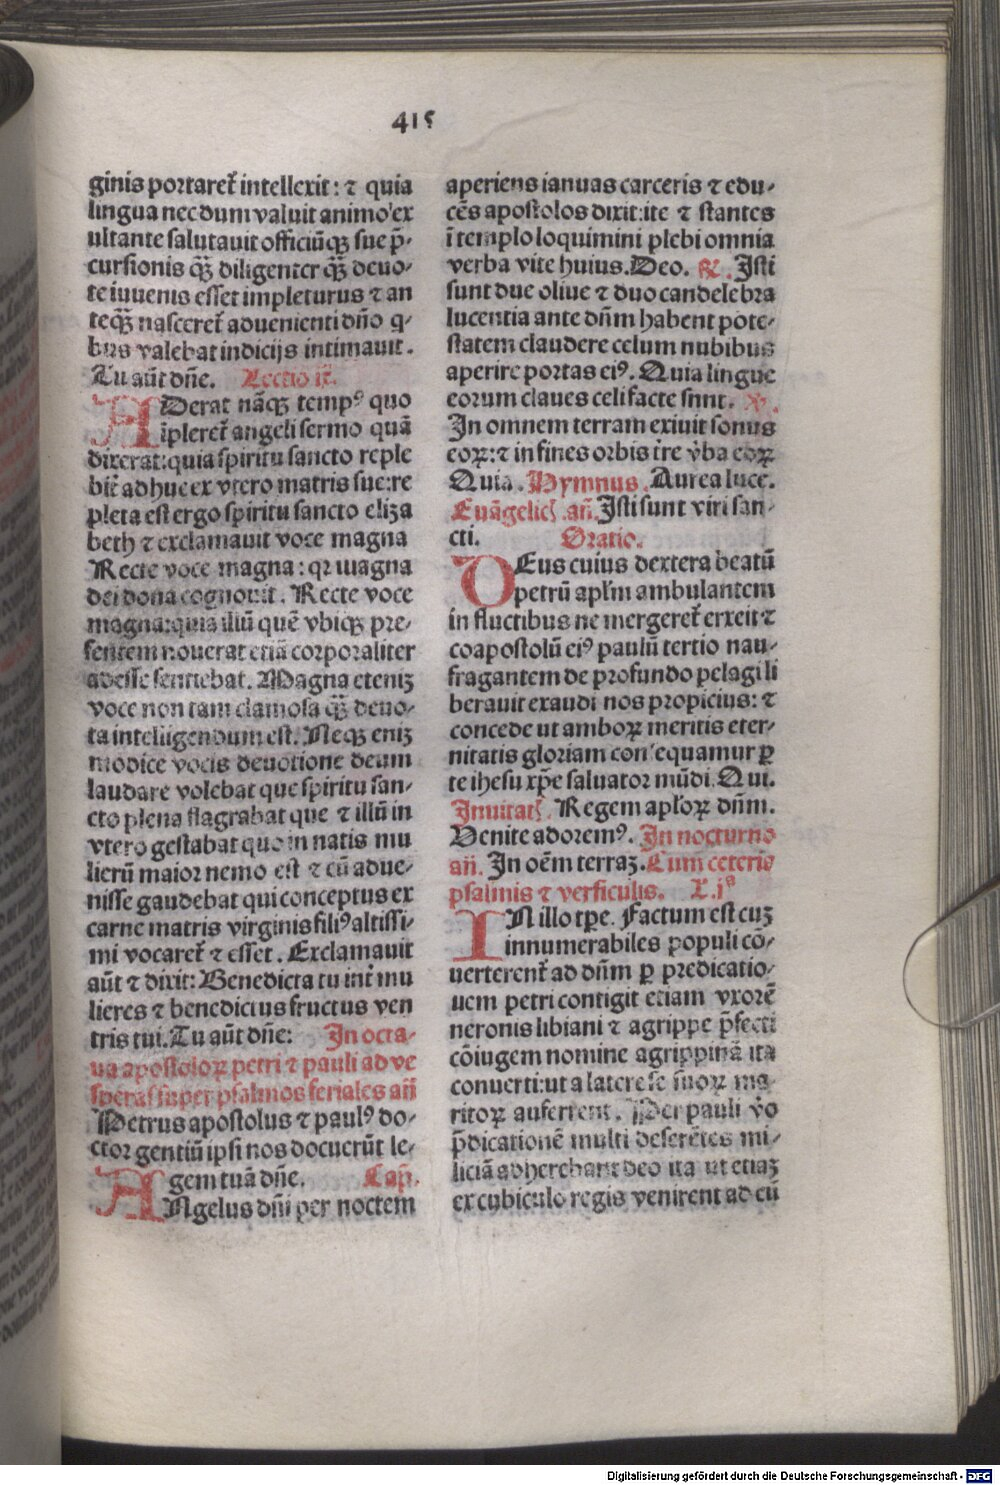 415
ginis portaret᷑ intellexit: ⁊ quia
lingua necdum valuit animo ex
ultante salutavit officiūqꝫ sue p̄-
cursionis qꝫ̄ diligenter qꝫ̄ devo-
te iuvenis esset impleturus ⁊ an
teqꝫ̄ nasceret᷑ advenienti dño q-
bus valebat indicijs intimauit.
Tu aūt dñe. Lectio ix.
ADerat nāqꝫ tempꝰ quo
īpleret᷑ angeli sermo quā
dixerat: quia spiritu sancto reple
bit᷑ adhuc ex vtero matris sue: re
pleta est ergo spiritu sancto eliza
beth ⁊ exclamauit voce magna
Recte voce magna: qr magna
dei dona cognouit. Recte voce
magna: quia illiū quē vbiqꝫ pre-
sentem nouerat etiā corporaliter
adesse sentiebat. Magna etenīꝫ
voce non tam clamosa qꝫ̄ devo-
ta intelligendum est. Neqꝫ eniꝫ
modice vocis deuotione deum
laudare volebat que spiritu san-
cto plena flagrabat que ⁊ illū in
vtero gestabat quo in natis mu
lierū maior nemo est ⁊ cū adve-
nisse gaudebat qui conceptus ex
carne matris virginis filiꝰ altissi-
mi vocaret᷑ ⁊ esset. Exclamauit
aūt ⁊ dixit: Benedicta tu int᷑ mu
lieres ⁊ benedictus fructus ven
tris tui. Tu aūt dñe: In octa-
ua apostoloꝝ petri ⁊ pauli ad ve
speras super psalmos feriales añ
Petrus apostolus ⁊ paulꝰ do-
ctor gentiū ipsi nos docuerūt le-
gem tuā dñe. Cap̄.
ANgelus dñi per noctem
aperiens ianuas carceris ⁊ edu-
cēs apostolos dixit: ite ⁊ stantes
ī templo loquimini plebi omnia
verba vite huius. Deo. ℟. Isti
sunt due oliue ⁊ duo candelebra
lucentia ante dñm habent pote-
statem claudere celum nubibus
aperire portas eiꝰ. Quia lingue
eorum claues celi facte snnt. ℣.
In omnem terram exiuit sonus
eoꝝ: ⁊ in fines orbis tre v̓ba eoꝝ
Quia. Hymnus. Aurea luce.
Euāgelic̄ añ. Isti sunt viri san-
cti. Oratio.
DEus cuius dextera beatū
petrū apl̄m ambulantem
in fluctibus ne mergeret᷑ erexit ⁊
coapostolū eiꝰ paulū tertio nau-
fragantem de profundo pelagi li
berauit exaudi nos propicius: ⁊
concede ut amboꝝ meritis eter-
nitatis gloriam consequamur ꝑ
te ihesu xp̄e saluator mūdi. Qui.
Inuitat᷑. Regem apl̄oꝝ dñm.
Venite adoremꝰ. In nocturno
añ. In oēm terraꝫ. Cum ceteris
psalmis ⁊ versiculis. L. iᵃ
IN illo tꝑe. Factum est cuꝫ
innumerabiles populi cō-
uerterent᷑ ad dñm ꝑ predicatio-
nem petri contigit etiam vxorē
neronis libiani ⁊ agrippe p̄fecti
cōiugem nomine agrippinā ita
conuerti: ut a latere se suoꝝ ma-
ritoꝝ auferrent. Per pauli v̓o
p̄dicationē multi deserētes mi-
liciā adherebant deo ita ut etiaꝫ
ex cubiculo regis venirent ad eū
Digitalisierung gefördert durch die Deutsche Forschungsgemeinschaft - DFG